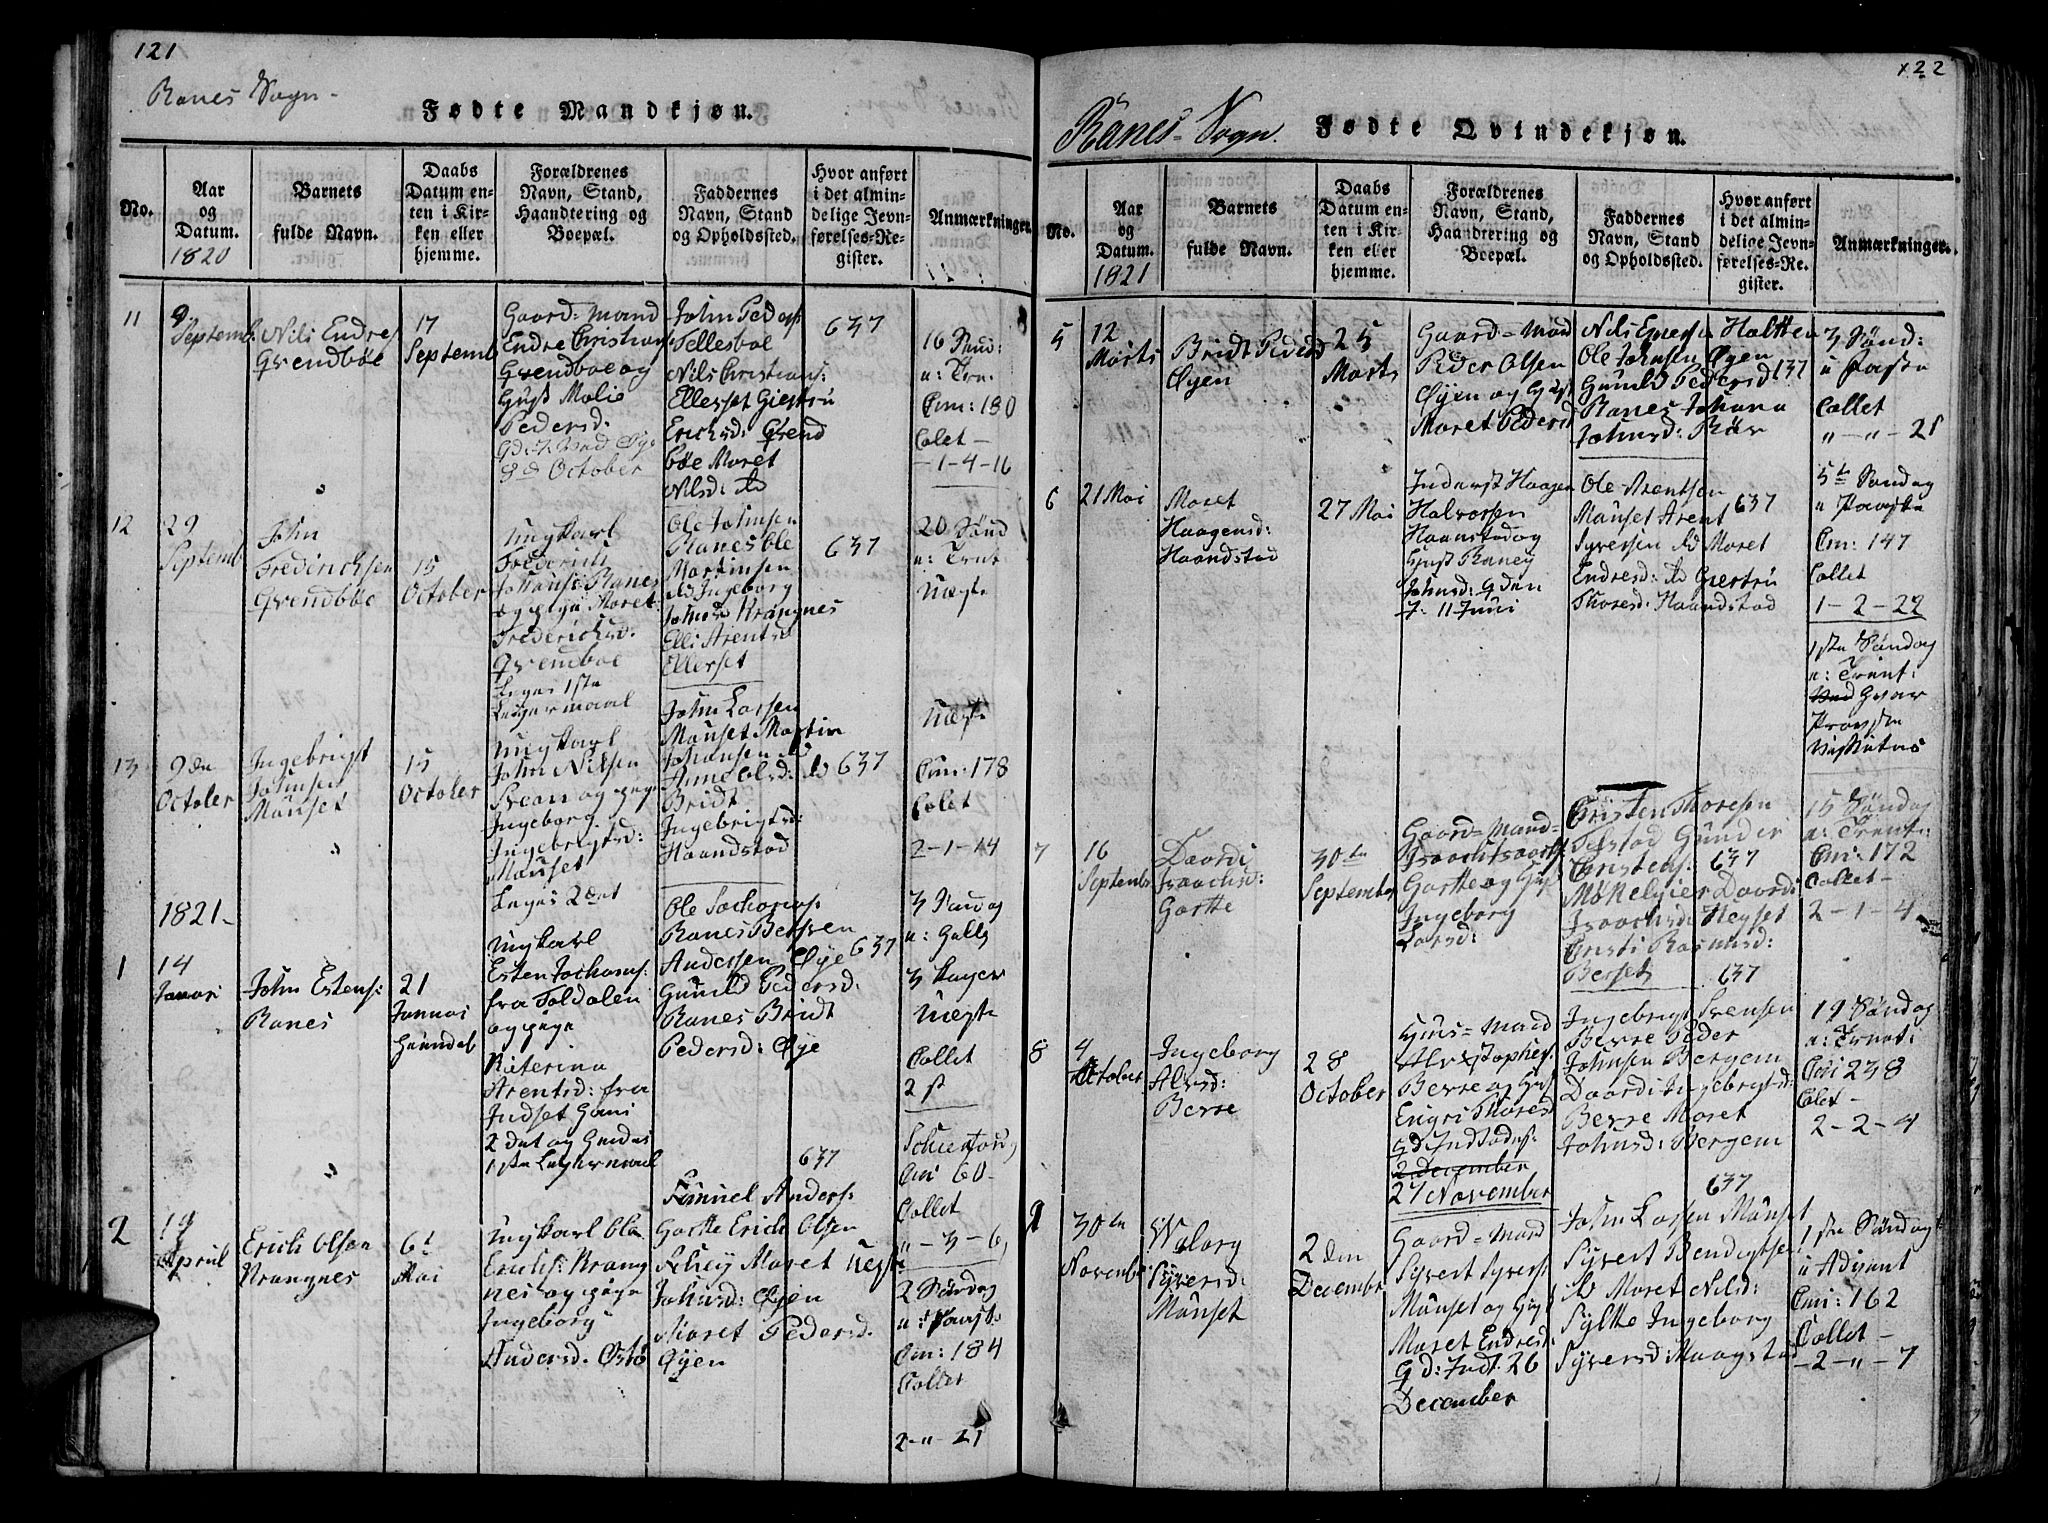 121
Ranes Sogn
Fødte Mandkjøn.
No.
Aar
og
Datum.
1820
Barnets
fulde Navn.
Daabs
Datum en-
ten i Kir-
ken eller
hjemme.
Forældrenes
Navn, Stand,
Haandtering og
Boepæl.
Faddernes
Navn, Stand
og Opholdssted.
Hvor anført
i det almin-
delige Jevn-
førelses-Re-
gister.
Anmærkninger.
11
9
Septemb:
Nils Endres
Qvendbøe
17
Septemb
Gaard=Mand
Endre Christians
Qvendboe og
Hust Malie
Pedersd.
8de October
John Peders:
Tellesboe
Nils Christians:
Ellerset Giertru
Erichsd: Qvend
bøe Maret
Nilsd: do
637
16 Sønd:
u: Trn.
Om: 130
Colet
- 1 - 4 - 16
12
29
Septemb
John
Frederichsen
Qvendbøe
15
October
Ungkarl
Frederich
Johanse Ranes
og pige Maret
Frederichsd:
Qvendboe
Leges 1ste
Leigermaal
Ole Johnsen
Ranes Ole
Martinsen
do Ingeborg
Johnsd Krangnes
Elli Arentsd
Ellerset
637
20 Sønd
u: Trnt
Uægte
13
9de
October
Ingebrigt
Johnsen
Mauset
15
October
Ungkarl
John Nilsen
Svean og pige
Ingeborg
Ingebrigtsd:
Mauset
Leges 2det
John Larsen
Mauset Martin
Johansen do
Anne Olsd: do
Bridt
Ingebrigtsd:
Haandstad
637
Uægte
Om: 178
Colet
2 - 1 - 14
1821
1
14
Januari
John Estens:
Ranes
21
Januai
Ungkarl
Esten Jochoms:
fra Toldalen
og pige
Katerina
Arentsd: fra
Indset Hans
2det og hendes
1ste Leyhermaal
Ole Zachorias:
Ranes Bersven
Anderssen Øye
Gunild Pedersd:
Ranes Bridt
Pedersd: Øye
637
3 Søndag
u: Helly
3 Konger
Uægte
Collet
2 s
2
19
April
Erich Olsen
Krangnes
6t
Mai
Ungkarl Ole
Erichs: Krang
nes og pige
Ingeborg
Andersd. Østb
Simuel Anders:
Gaatte Erich Olsen
Schey Maret
Johnsd: Øyen
Maret Pedersd.
Øyen
637
Uegte
Omi 60-
Collet
" - 3 - 6
2 Søndag
u: Paaske
Om: 184
Collet
2 - " - 21
122
Ranes Sogn.
Fødte Qvindekjøn.
No.
Aar
og
Datum.
1821
Barnets
fulde Navn.
Daabs
Datum en-
ten i Kir-
ken eller
hjemme.
Forældrenes
Navn, Stand,
Haandtering og
Boepæl.
Faddernes
Navn, Stand
og Opholdssted.
Hvor anført
i det almin-
delige Jevn-
førelses-Re-
gister.
Anmærkninger.
5
12
Marts
Bridt Pedersd
Øyen
25
Marts
Gaard=Mand
Peder Olsen
Øyen og Hust
Maret Pedersd
Nils Halten
Ole Johnsen Øyen
Gunild Pedersd 137
Ranes Johana
Johnsd: Røv
3 Sønd:
u Faste
Collet
" - " - 21
6
21 Mai
Maret
Haagensd:
Haandstad
27 Mai
Inderst Haagen
Halvorsen
Haanstad og
Hust Raney
Johnsd:
11 Juni
Ole Arentsen
Mauset Arent 637
Syversen do Maret
Endresd: do Giertru
Thoresd: Haandstad
5te Søndag
u Paaske
Om: 147
Collet
1 - 2 - 22
1ste Søndag
u: Trint:
Hvar
7
16
Septemb
Daardi
Isaachsd:
Gaatte
30te
September
Gaard=Mand
Gaatte og Hust
Ingeborg
Larsd:
Cristen Thoresen
Testad Gunder
Christens: 637
Daardi
Isaachsd: Heyset
Cristi Rasmusd:
Berset 637
15 Søndag
u: Trint:
Omi: 172
Collet-
2 - 1 - 4
8
4
October
Ingeborg
Alvsd:
Berre
28
October
Huus=Mand
Alv Christophers:
Berre og Hust
Engri Thoresd
2 December
27 November
Ingebrigt Svensen
Berre Peder
Johnsen Bergem
Daardi Ingebrigtsd:
Berre Maret
Johnsd: Bergem
637
19 Søndag
u: Trnt:
Omi 238
Colet-
2 - 2 - 4
9
30te
Novemb
Walborg
Syversd:
Mauset
2den
December
Gaard=Mand
Syvert Syvers:
Mauset og Hust
Maret Endresd:
Qd: Indt. 26
December
John Larsen Mauset
Syvert Bendigtsen
do Maret Nilsd:
Sylte Ingeborg
Syversd: Maagstad
1ste Søndag
u Advent
Omi: 162
Collet-
- 2 - " - 7